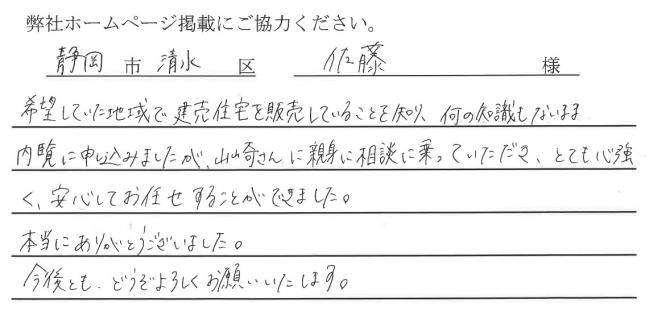 弊社ホームページ掲載にご協力ください。
静岡 市 清水 区 佐藤 様
希望していた地域で建売住宅を販売していることを知り、何の知識もないまま
内覧に申し込みましたが、山崎さんに親身に相談に乗っていただき、とても心強
く、安心してお任せすることができました。
本当にありがとうございました。
今後とも、どうぞよろしくお願いいたします。